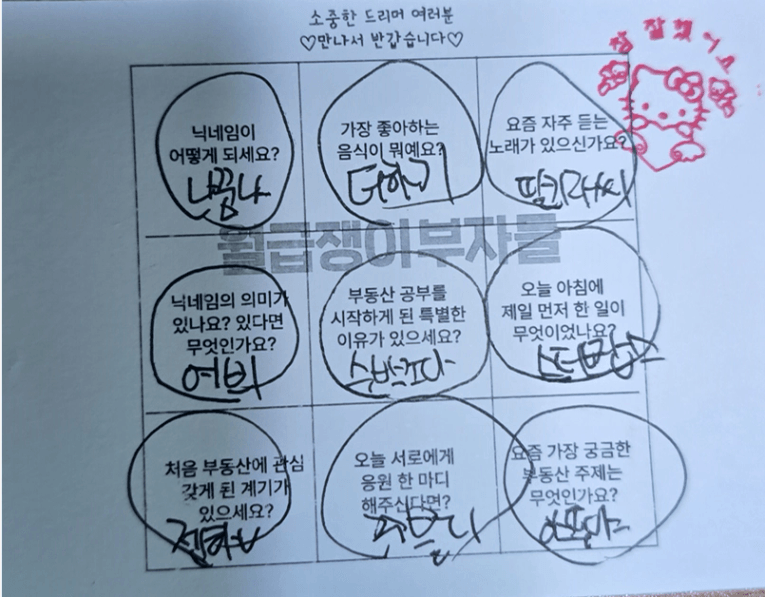 소중한 드리머 여러분
♡만나서 반갑습니다♡
참 잘했어요
닉네임이
어떻게 되세요?
나꿈나
가장 좋아하는
음식이 뭐예요?
요즘 자주 듣는
노래가 있으신가요?
월급쟁이부자들
닉네임의 의미가
있나요? 있다면
무엇인가요?
부동산 공부를
시작하게 된 특별한
이유가 있으세요?
오늘 아침에
제일 먼저 한 일이
무엇이었나요?
처음 부동산에 관심
갖게 된 계기가
있으세요?
오늘 서로에게
응원 한 마디
해주신다면?
요즘 가장 궁금한
부동산 주제는
무엇인가요?